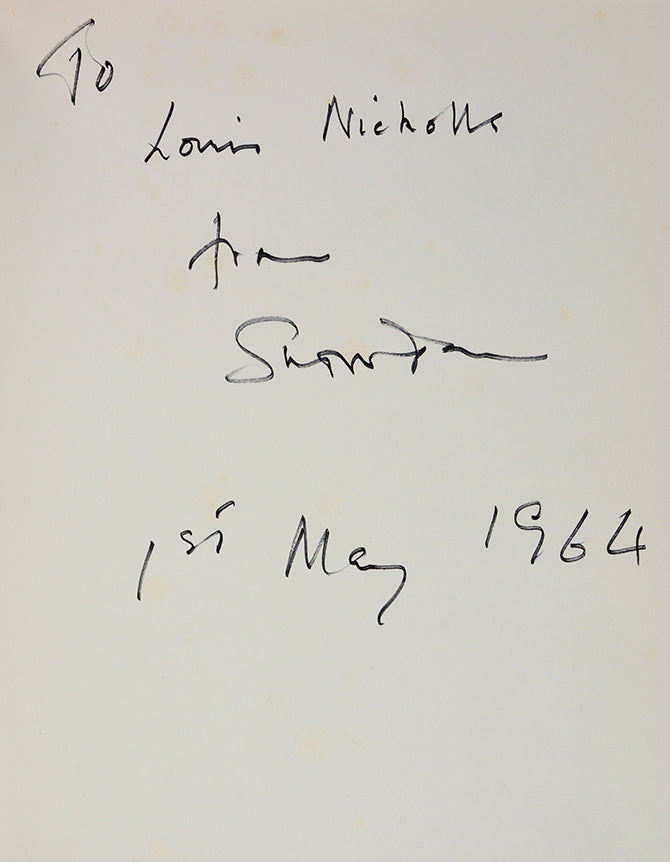 To
Louis Nicholls
from
Snowdon
1st May 1964